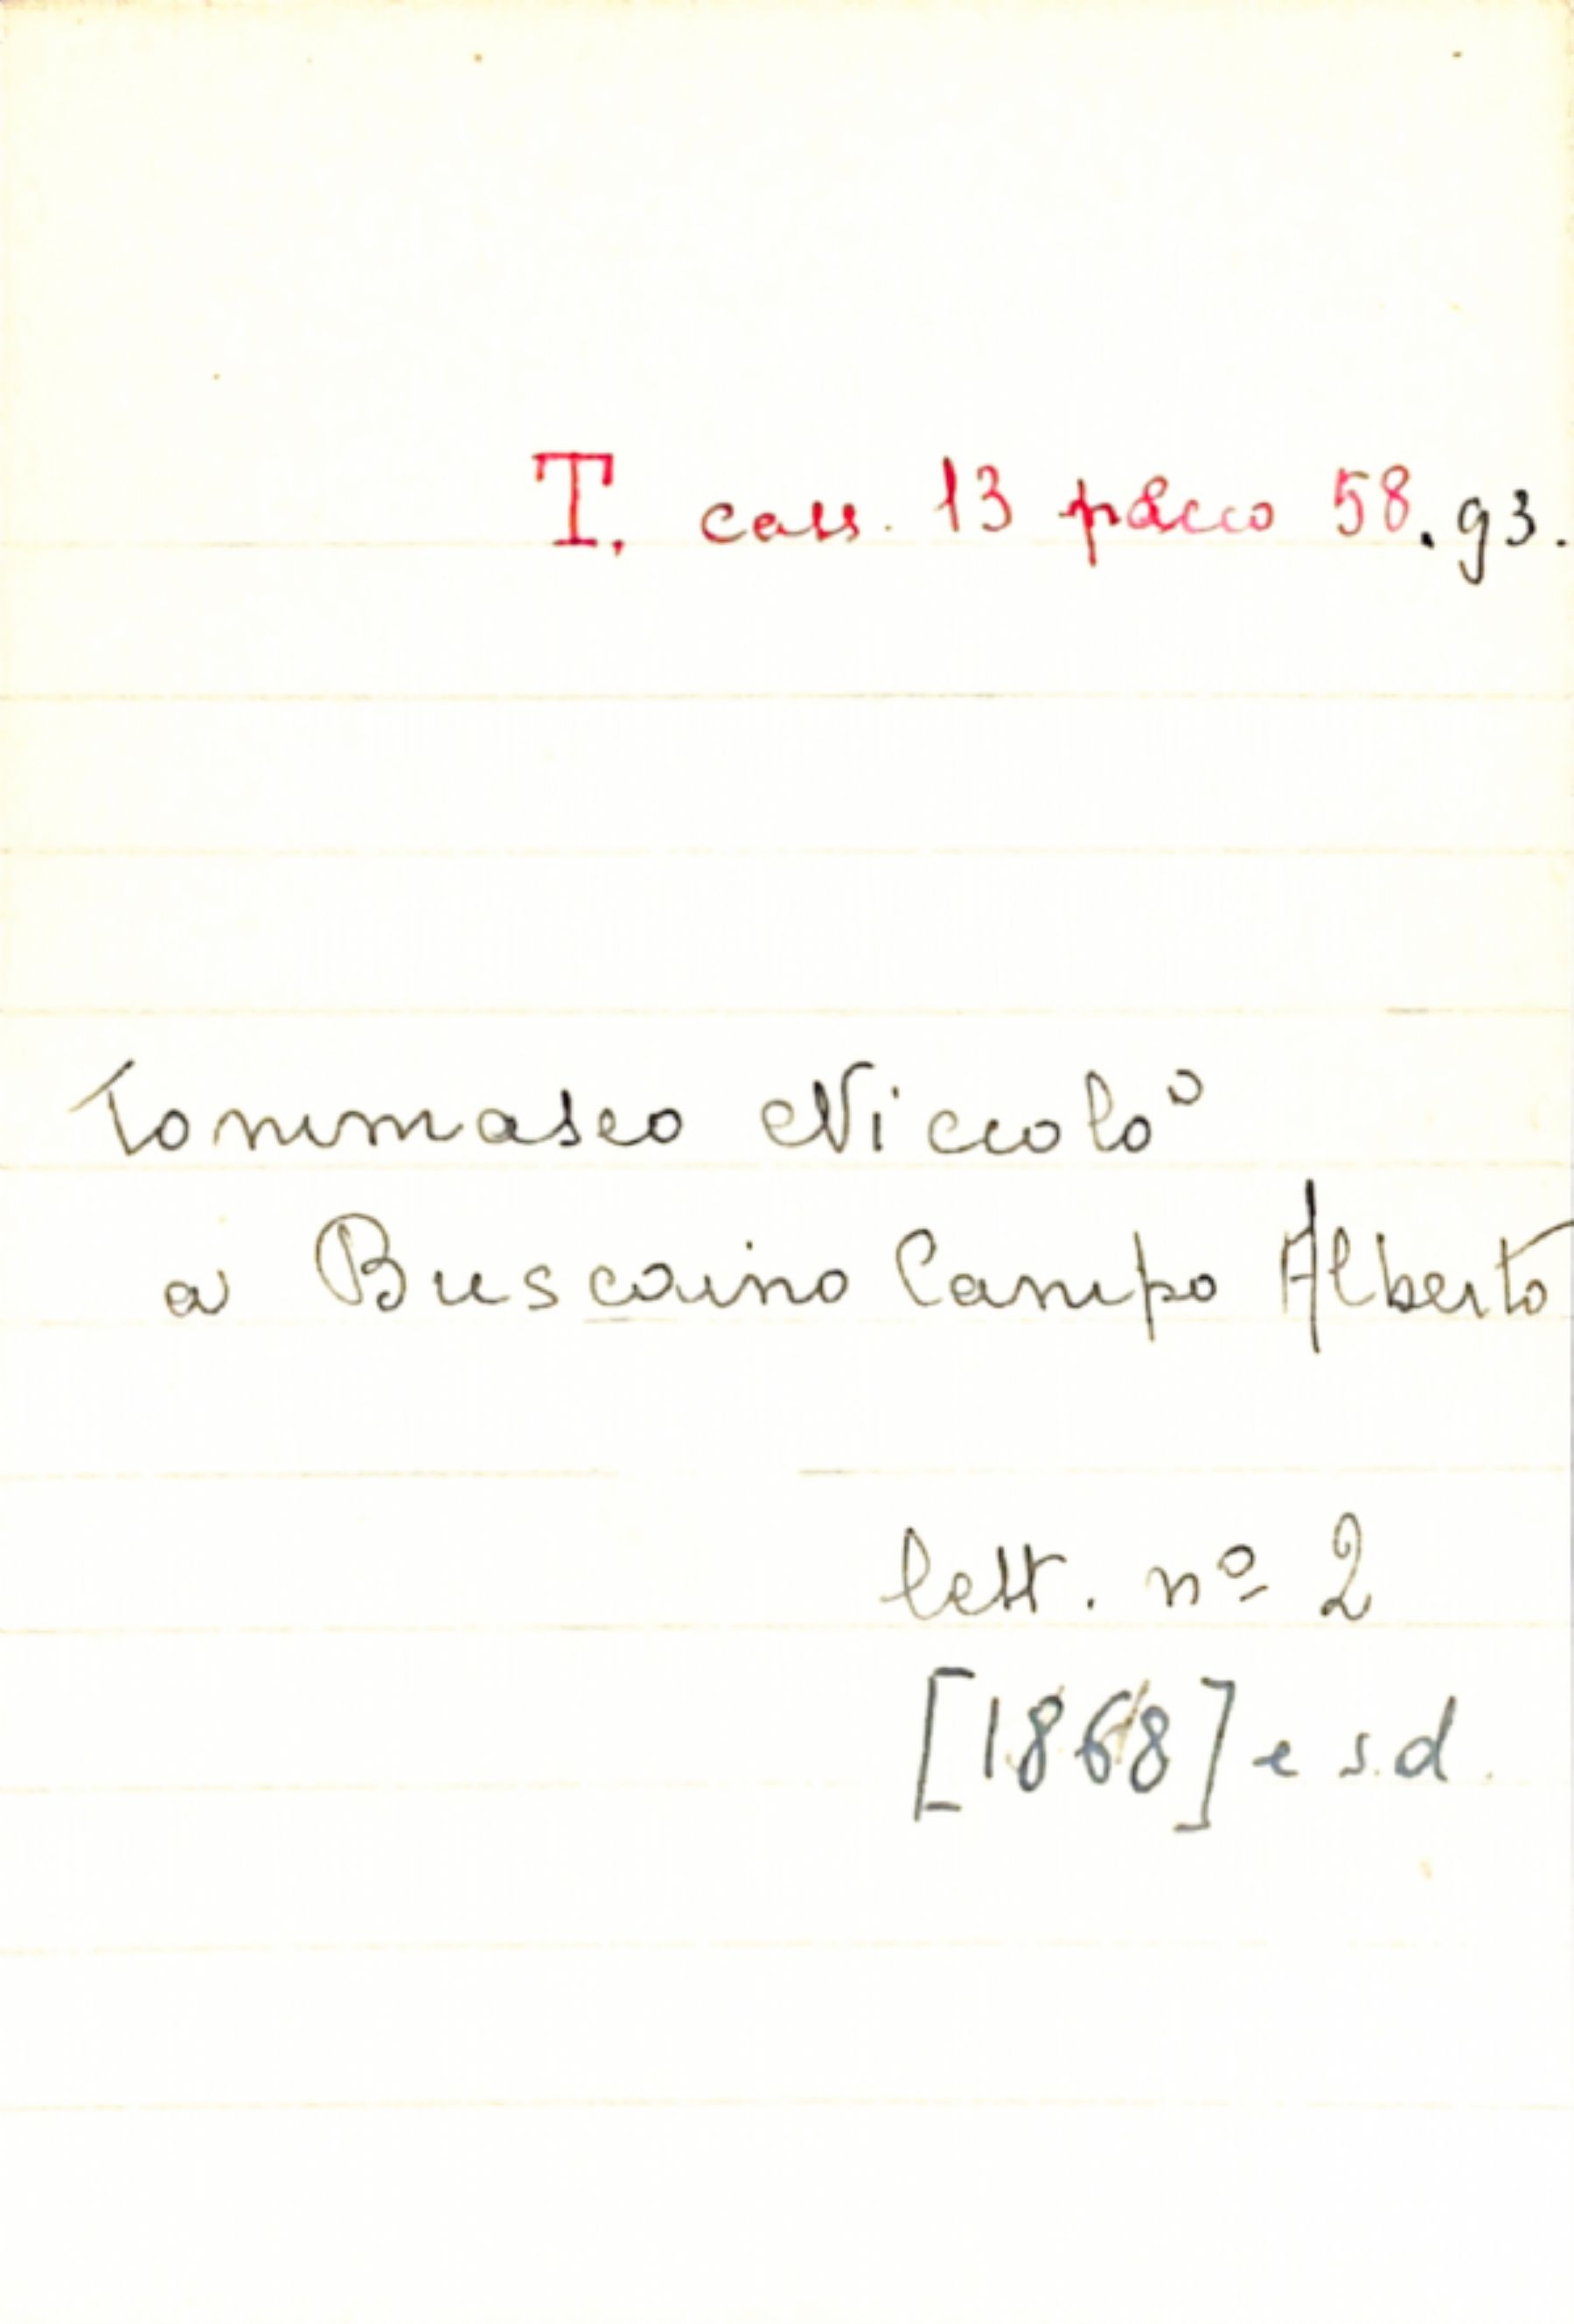 T. cass. 13 pacco 58.93.
Tommaseo Niccolò
a Buscaino Campo Alberto
lett. nº 2
[1868] e s.d.